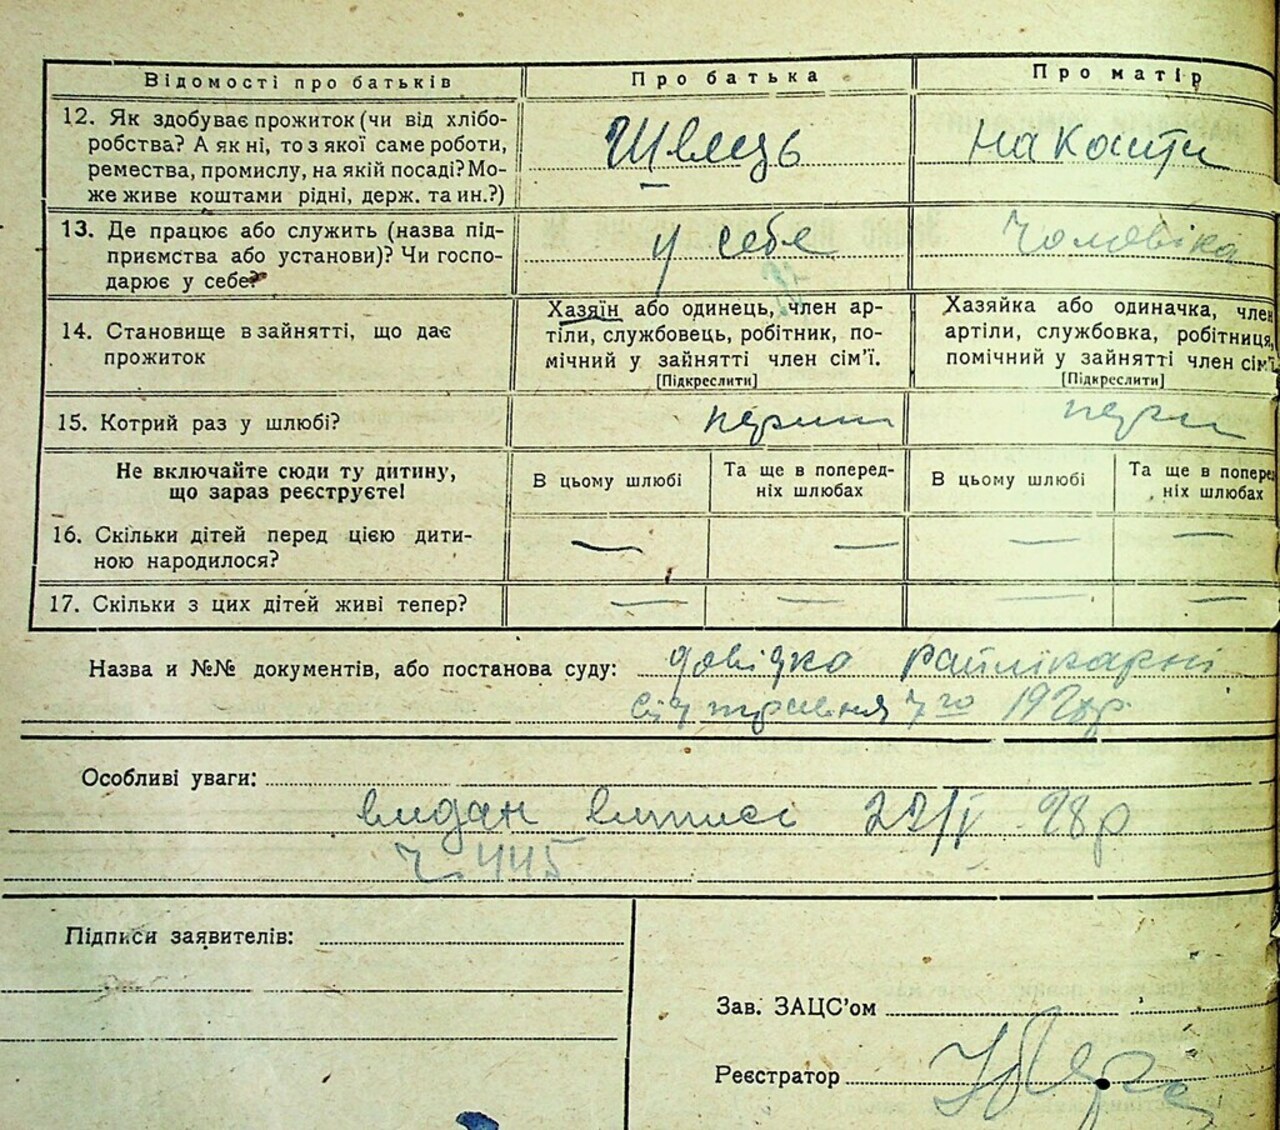 Відомості про батьків
Про батька
Про матір
12. Як здобуває прожиток (чи від хлібо-
робства? А як ні, то з якої саме роботи,
ремества, промислу, на якій посаді? Мо-
же живе коштами рідні, держ. та ин.?)
Швець
на кошти
13. Де працює або служить (назва під-
приємства або установи)? Чи госпо-
дарює у себе?
у себе
чоловіка
14. Становище в зайнятті, що дає
прожиток
Хазяїн або одинець, член ар-
тіли, службовець, робітник, по-
мічний у зайнятті член сім’ї.
[Підкреслити]
Хазяйка або одиначка, член
артіли, службовка, робітниця,
помічний у зайнятті член сім’ї
[Підкреслити]
15. Котрий раз у шлюбі?
Не включайте сюди ту дитину,
що зараз реєструєте!
В цьому шлюбі
Та ще в поперед-
ніх шлюбах
В цьому шлюбі
Та ще в поперед
ніх шлюбах
16. Скільки дітей перед цією дити-
ною народилося?
— — — —
17. Скільки з цих дітей живі тепер?
— — — —
Назва и №№ документів, або постанова суду: довідка райлікарні
травня 7го 1928р.
Особливі уваги:
видан витис 22/V 28р
ч. 445
Підписи заявителів:
Зав. ЗАЦС’ом
Реєстратор